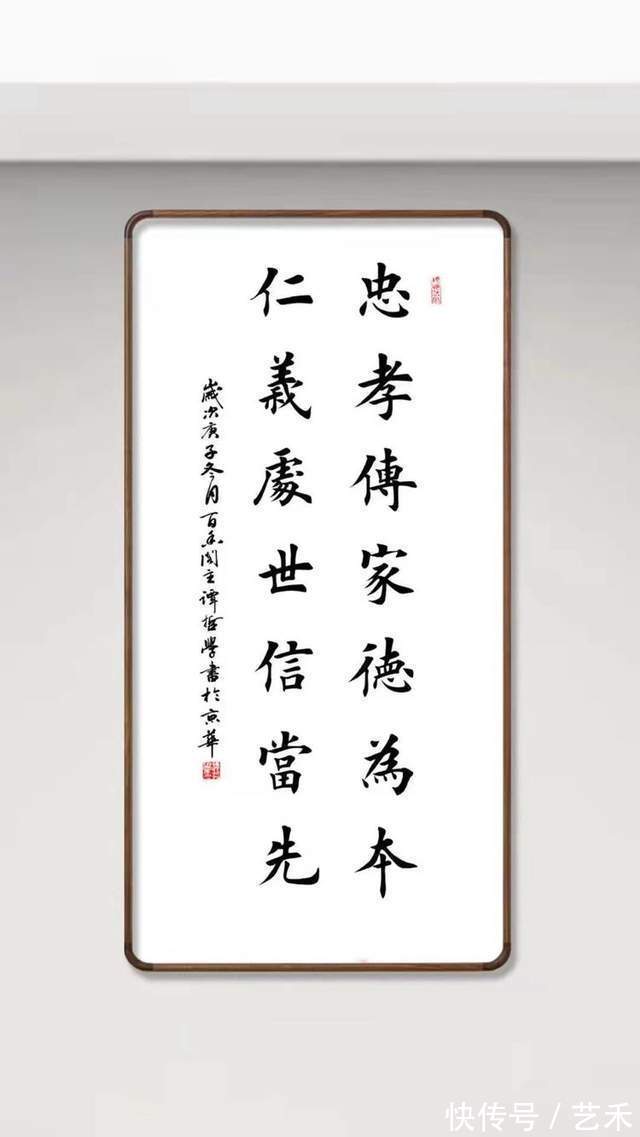 忠孝傳家德為本
仁義處世信當先
歲次庚子冬月百忝閣主譚哲學書於京華
快传号/艺禾